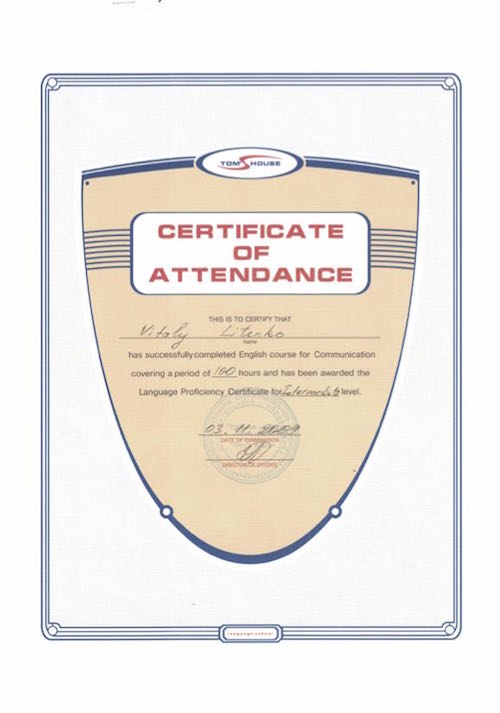 TOM'S HOUSE
CERTIFICATE
OF
ATTENDANCE
THIS IS TO CERTIFY THAT
Vitaly Litenko
name
has successfully completed English course for Communication
covering a period of 100 hours and has been awarded the
Language Proficiency Certificate for Intermediate level.
03.11.2009
DATE OF EXAMINATION
DIRECTOR OF STUDIES
language school